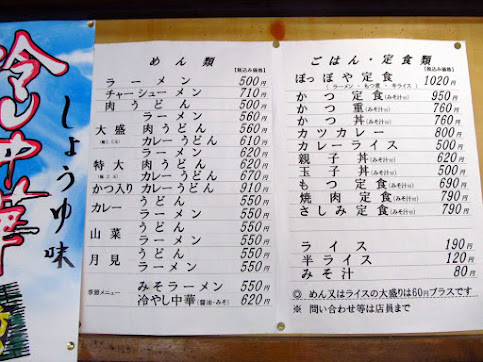 冷し中華
しょうゆ味
めん類
【税込み価格】
ラーメン 500円
チャーシューメン 710円
肉うどん 500円
ラーメン 560円
大盛 肉うどん 560円
カレーうどん 610円
ラーメン 620円
特大 肉うどん 620円
カレーうどん 670円
かつ入り カレーうどん 910円
カレー うどん 550円
ラーメン 550円
山菜 うどん 550円
ラーメン 550円
月見 うどん 550円
ラーメン 550円
季節メニュー みそラーメン 550円
冷やし中華(醤油・みそ) 620円
ごはん・定食類
【税込み価格】
ぽっぽや定食 1020円
(ラーメン・もつ煮・半ライス)
かつ定食(みそ汁付) 950円
かつ重(みそ汁付) 760円
かつ丼(みそ汁付) 760円
カツカレー 800円
カレーライス 500円
親子丼(みそ汁付) 620円
玉子丼(みそ汁付) 500円
もつ定食(みそ汁付) 690円
焼肉定食(みそ汁付) 790円
さしみ定食(みそ汁付) 790円
ライス 190円
半ライス 120円
みそ汁 80円
◎ めん又はライスの大盛りは60円プラスです
※ 問い合わせ等は店員まで